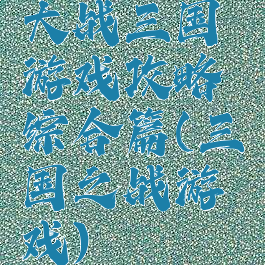 大战三国
游戏攻略
综合篇(三
国之战游
戏)